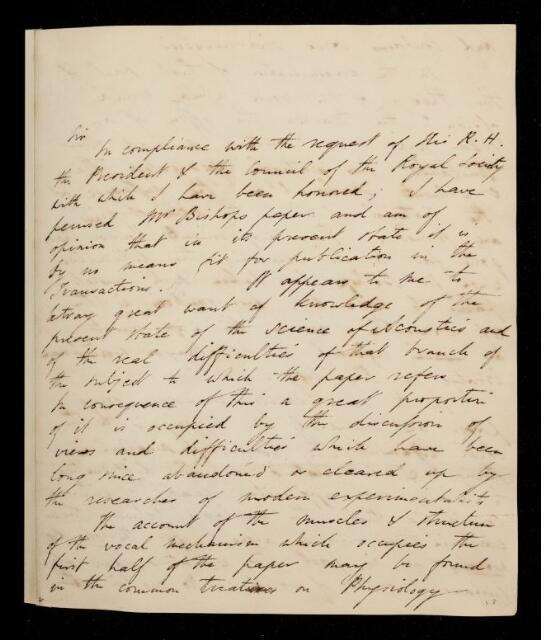 Sir
In compliance with the request of His R. H.
the President & the Council of the Royal Society
with which I have been honored; I have
perused Mr Bishops paper and am of
opinion that in its present state it is
by no means fit for publication in the
Transactions. It appears to me to
betray great want of knowledge of the
present state of the science of Acoustics and
of the real difficulties of that branch of
the subject to which the paper refers
In consequence of this a great proportion
of it is occupied by the discussion of
views and difficulties which have been
long since abandoned or cleared up by
the researches of modern experimentalists
The account of the muscles & structure
of the vocal mechanism which occupies the
first half of the paper may be found
in the common treatises on Physiology